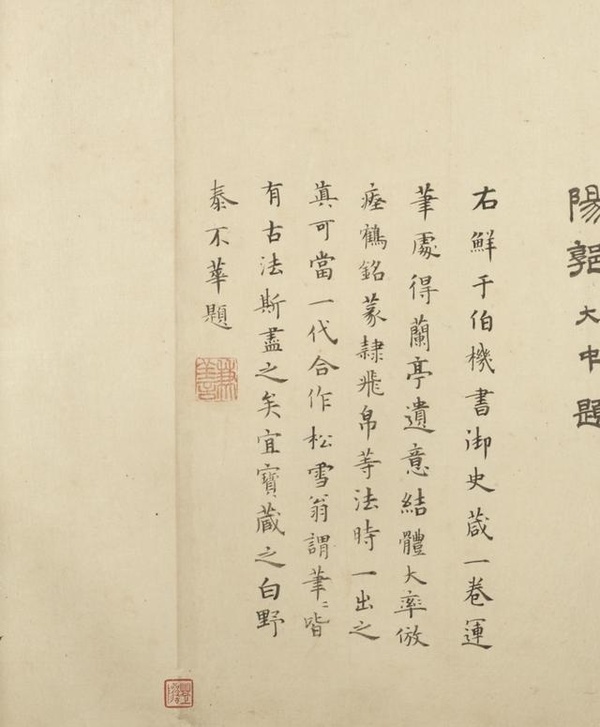 陽郭大中題
右鮮于伯機書御史葴一卷運
筆處得蘭亭遺意結體大率倣
瘞鶴銘篆隷飛帛等法時一出之
眞可當一代合作松雪翁謂筆〻皆
有古法斯盡之矣宜寶蔵之白野
泰不華題
兼善